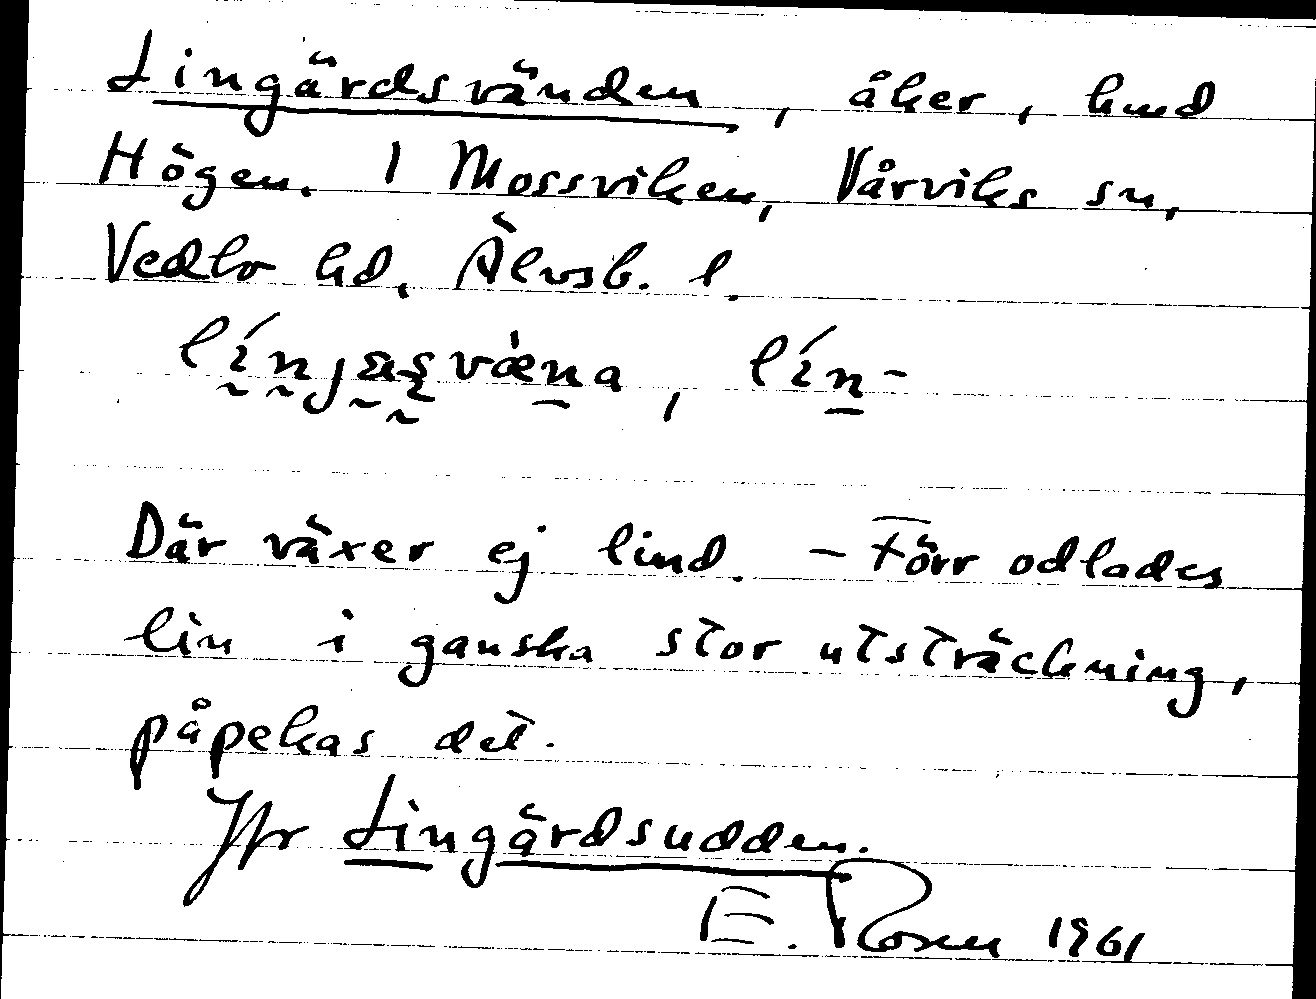 Lingärdsvänden, åker, hmd
Högen. I Mossviken, Vårviks sn,
Vedbo hd, Älvsb. l.
línjæṣvæ̀na, lín-
Där växer ej lind. – Förr odlades
lin i ganska stor utsträckning,
påpekas det.
Jfr Lingärdsudden.
E. Rosen 1961